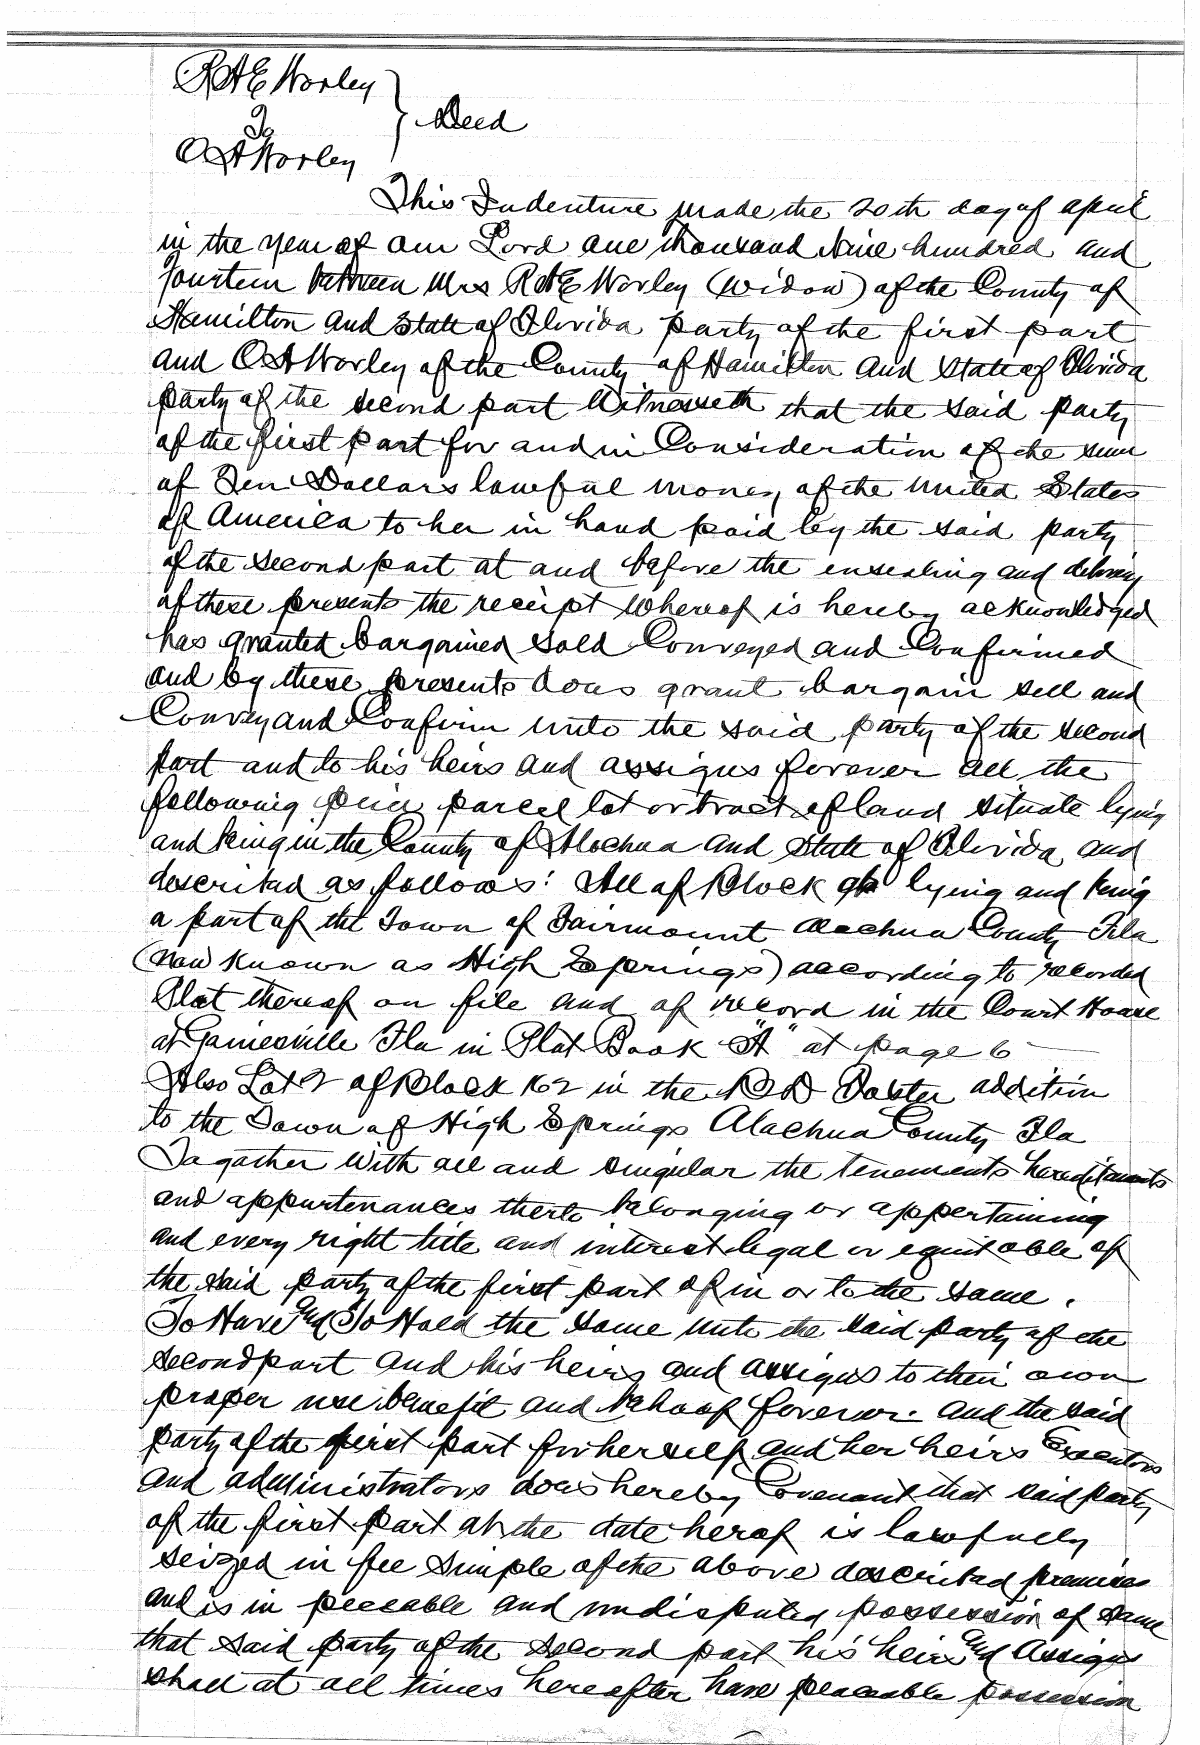 R A E Worley
To
O A Worley
} Deed
This Indenture made the 20th day of April
in the year of our Lord one thousand nine hundred and
fourteen between Mrs R A E Worley (widow) of the County of
Hamilton and State of Florida party of the first part
and O A Worley of the County of Hamilton and State of Florida
party of the second part Witnesseth that the said party
of the first part for and in Consideration of the sum
of Ten Dollars lawful money of the United States
of America to her in hand paid by the said party
of the second part at and before the ensealing and delivery
of these presents the receipt whereof is hereby acknowledged
has granted bargained sold Conveyed and Confirmed
and by these presents does grant bargain sell and
Convey and Confirm unto the said party of the second
part and to his heirs and assigns forever all the
following piece parcel lot or tract of land situate lying
and being in the County of Alachua and State of Florida and
described as follows: All of Block lying and being
a part of the Town of Fairmount Alachua County Fla
(now known as High Springs) according to recorded
Plat thereof on file and of record in the Court House
at Gainesville Fla in Plat Book "A" at page 6
Also Lot 2 of Block 162 in the addition
to the Town of High Springs Alachua County Fla
Togather with all and singular the tenements hereditaments
and appurtenances thereto belonging or appertaining
and every right title and interest legal or equitable of
the said party of the first part of in or to the same.
To Have and To Hold the same unto the said party of the
second part and his heirs and assigns to their own
proper use benefit and behoof forever. and the said
party of the first part for herself and her heirs Executors
and administrators does hereby Covenant that said party
of the first part at the date herof is lawfully
seized in fee simple of the above described premises
and is in peceable and undisputed possession of same
that said party of the second part his heirs and Assigns
shall at all times hereafter have peaceable possession